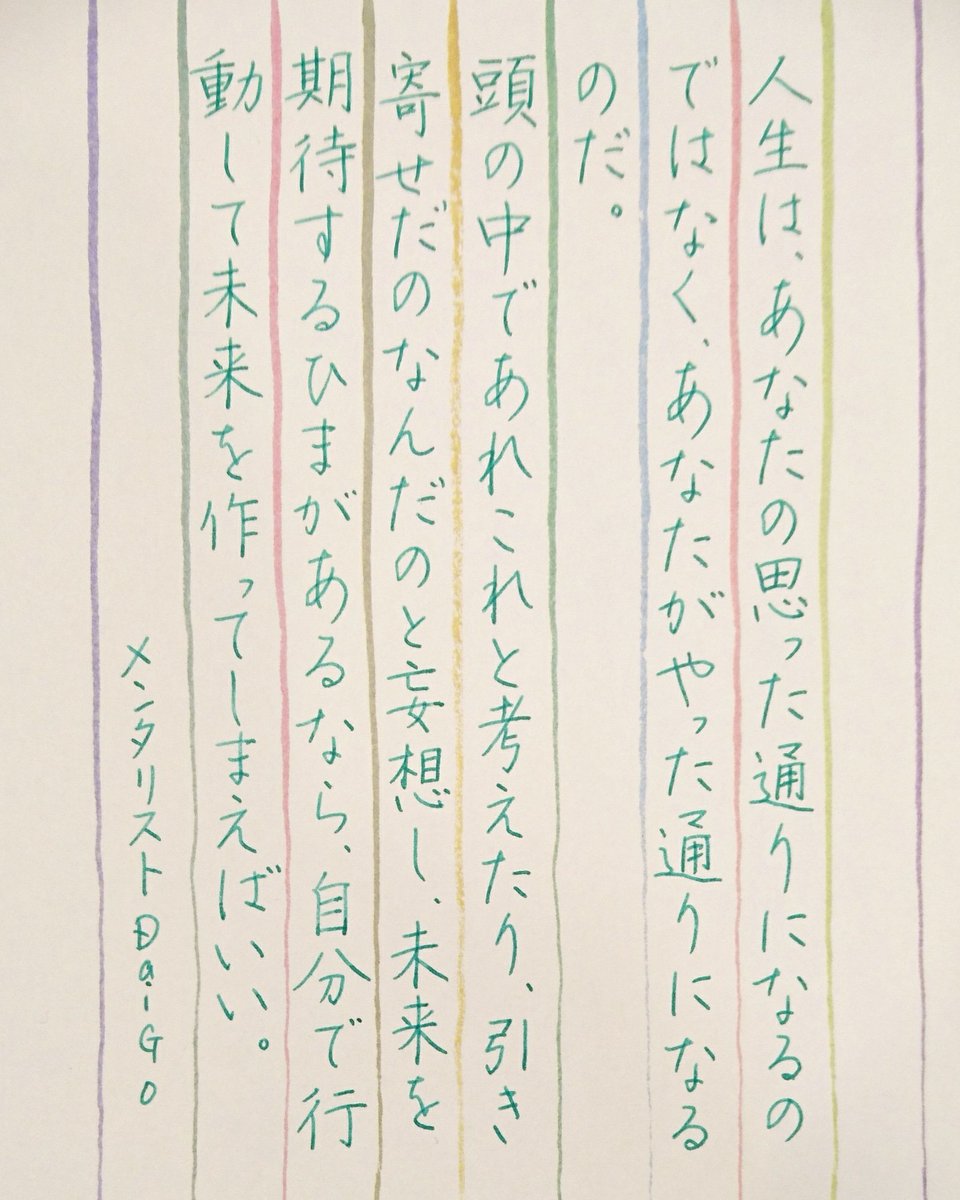 人生は、あなたの思った通りになるの
ではなく、あなたがやった通りになる
のだ。
頭の中であれこれと考えたり、引き
寄せだのなんだのと妄想し、未来を
期待するひまがあるなら、自分で行
動して未来を作ってしまえばいい。
メンタリストDaiGo